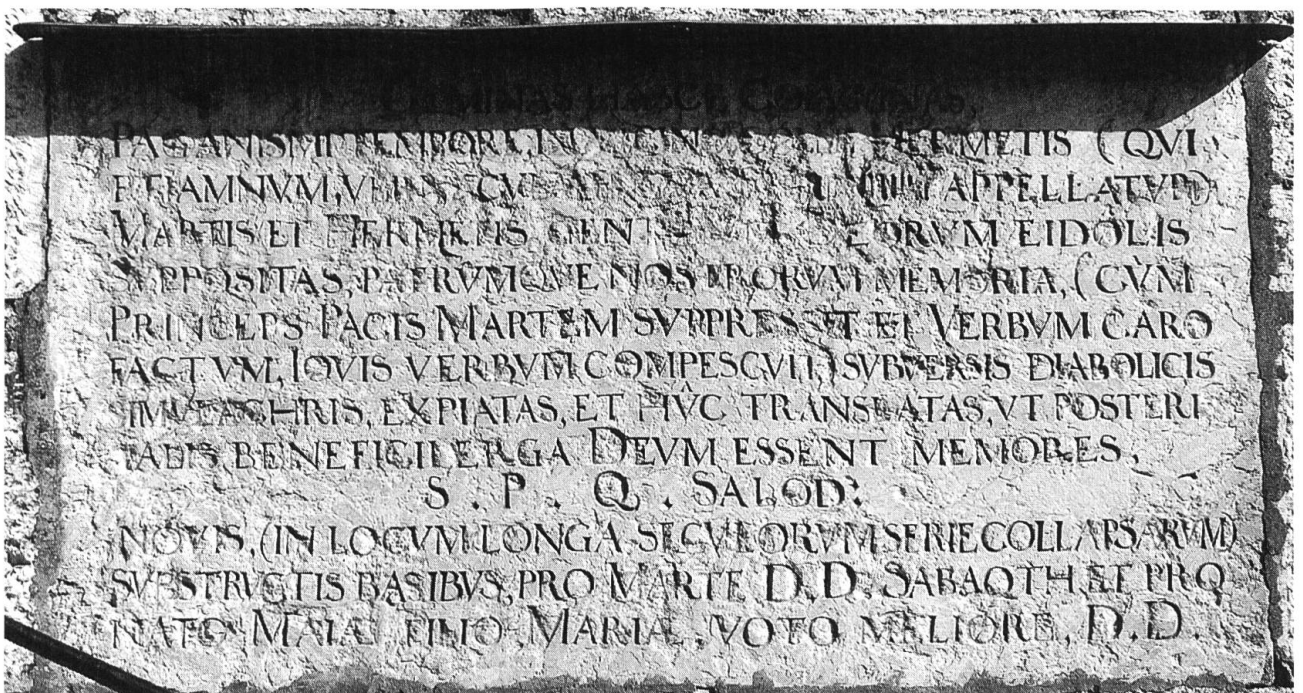 GEMINAS HASCE COLVMNAS,
PAGANISMI TEMPORE, HERMETIS (QVI
ETIAMNVM, APPELLATVR)
MARTIS ET HERMETIS EIDOLIS
SVPPOSITAS, PATRVMQVE NOSTRORVM MEMORIA, (CVM
PRINCEPS PACIS MARTEM SVPPRESSIT ET VERBVM CARO
FACTVM, IOVIS VERBVM COMPESCVIT,) SVBVERSIS DIABOLICIS
SIMVLACHRIS, EXPIATAS, ET HVC TRANSLATAS, VT POSTERI
TATIS BENEFICII ERGA DEVM ESSENT MEMORES,
S . P . Q . SALOD:
NOVIS, (IN LOCVM LONGA SECVLORVM SERIE COLLAPSARVM)
SVBSTRVCTIS BASIBVS, PRO MARTE D. D. SABAOTH, ET PRO
NATO MAIÆ FILIO MARIÆ, VOTO MELIORE, D.D.